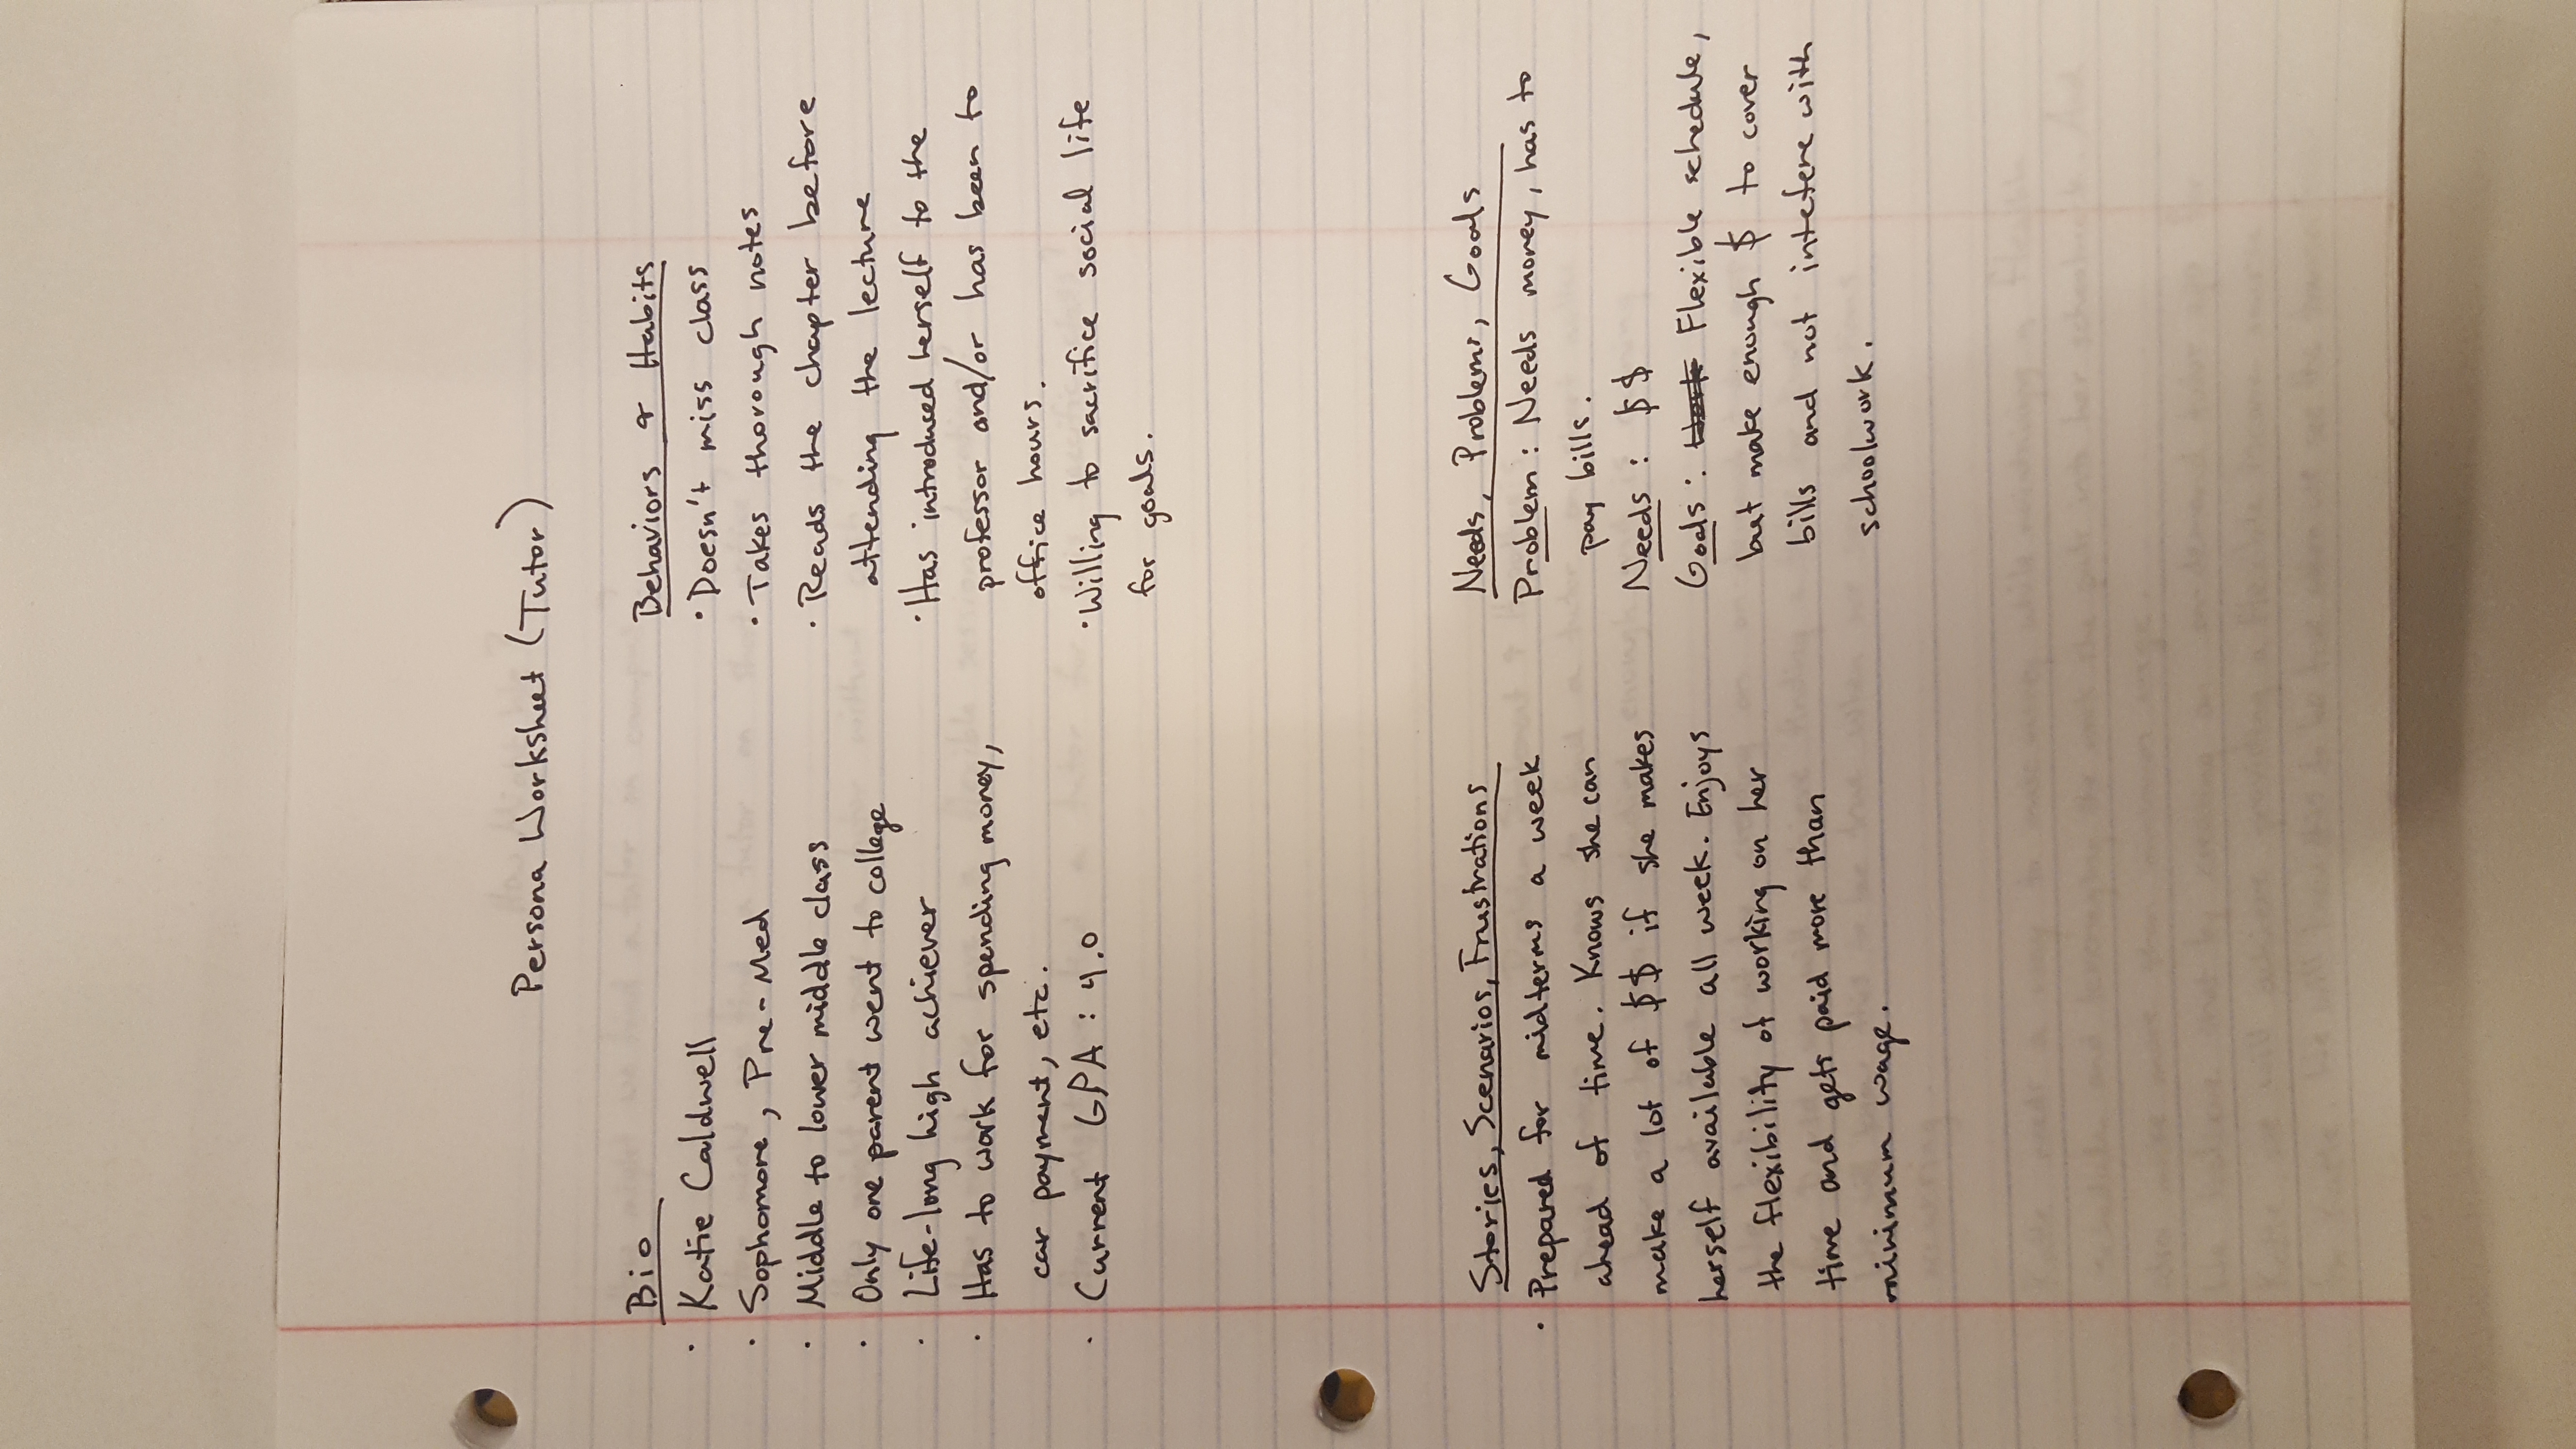 Persona Worksheet (Tutor)
Bio
· Katie Caldwell
· Sophomore, Pre-Med
· Middle to lower middle class
· Only one parent went to college
· Life-long high achiever
· Has to work for spending money,
car payment, etc.
· Current GPA : 4.0
Behaviors & Habits
· Doesn't miss class
· Takes thorough notes
· Reads the chapter before
attending the lecture
· Has introduced herself to the
professor and/or has been to
office hours.
· Willing to sacrifice social life
for goals.
Stories, Scenarios, Frustrations
· Prepared for midterms a week
ahead of time. Knows she can
make a lot of $$ if she makes
herself available all week. Enjoys
the flexibility of working on her
time and gets paid more than
minimum wage.
Needs, Problems, Goals
Problem : Needs money, has to
pay bills.
Needs : $$
Goals : Flexible schedule,
but make enough $ to cover
bills and not intefere with
schoolwork.